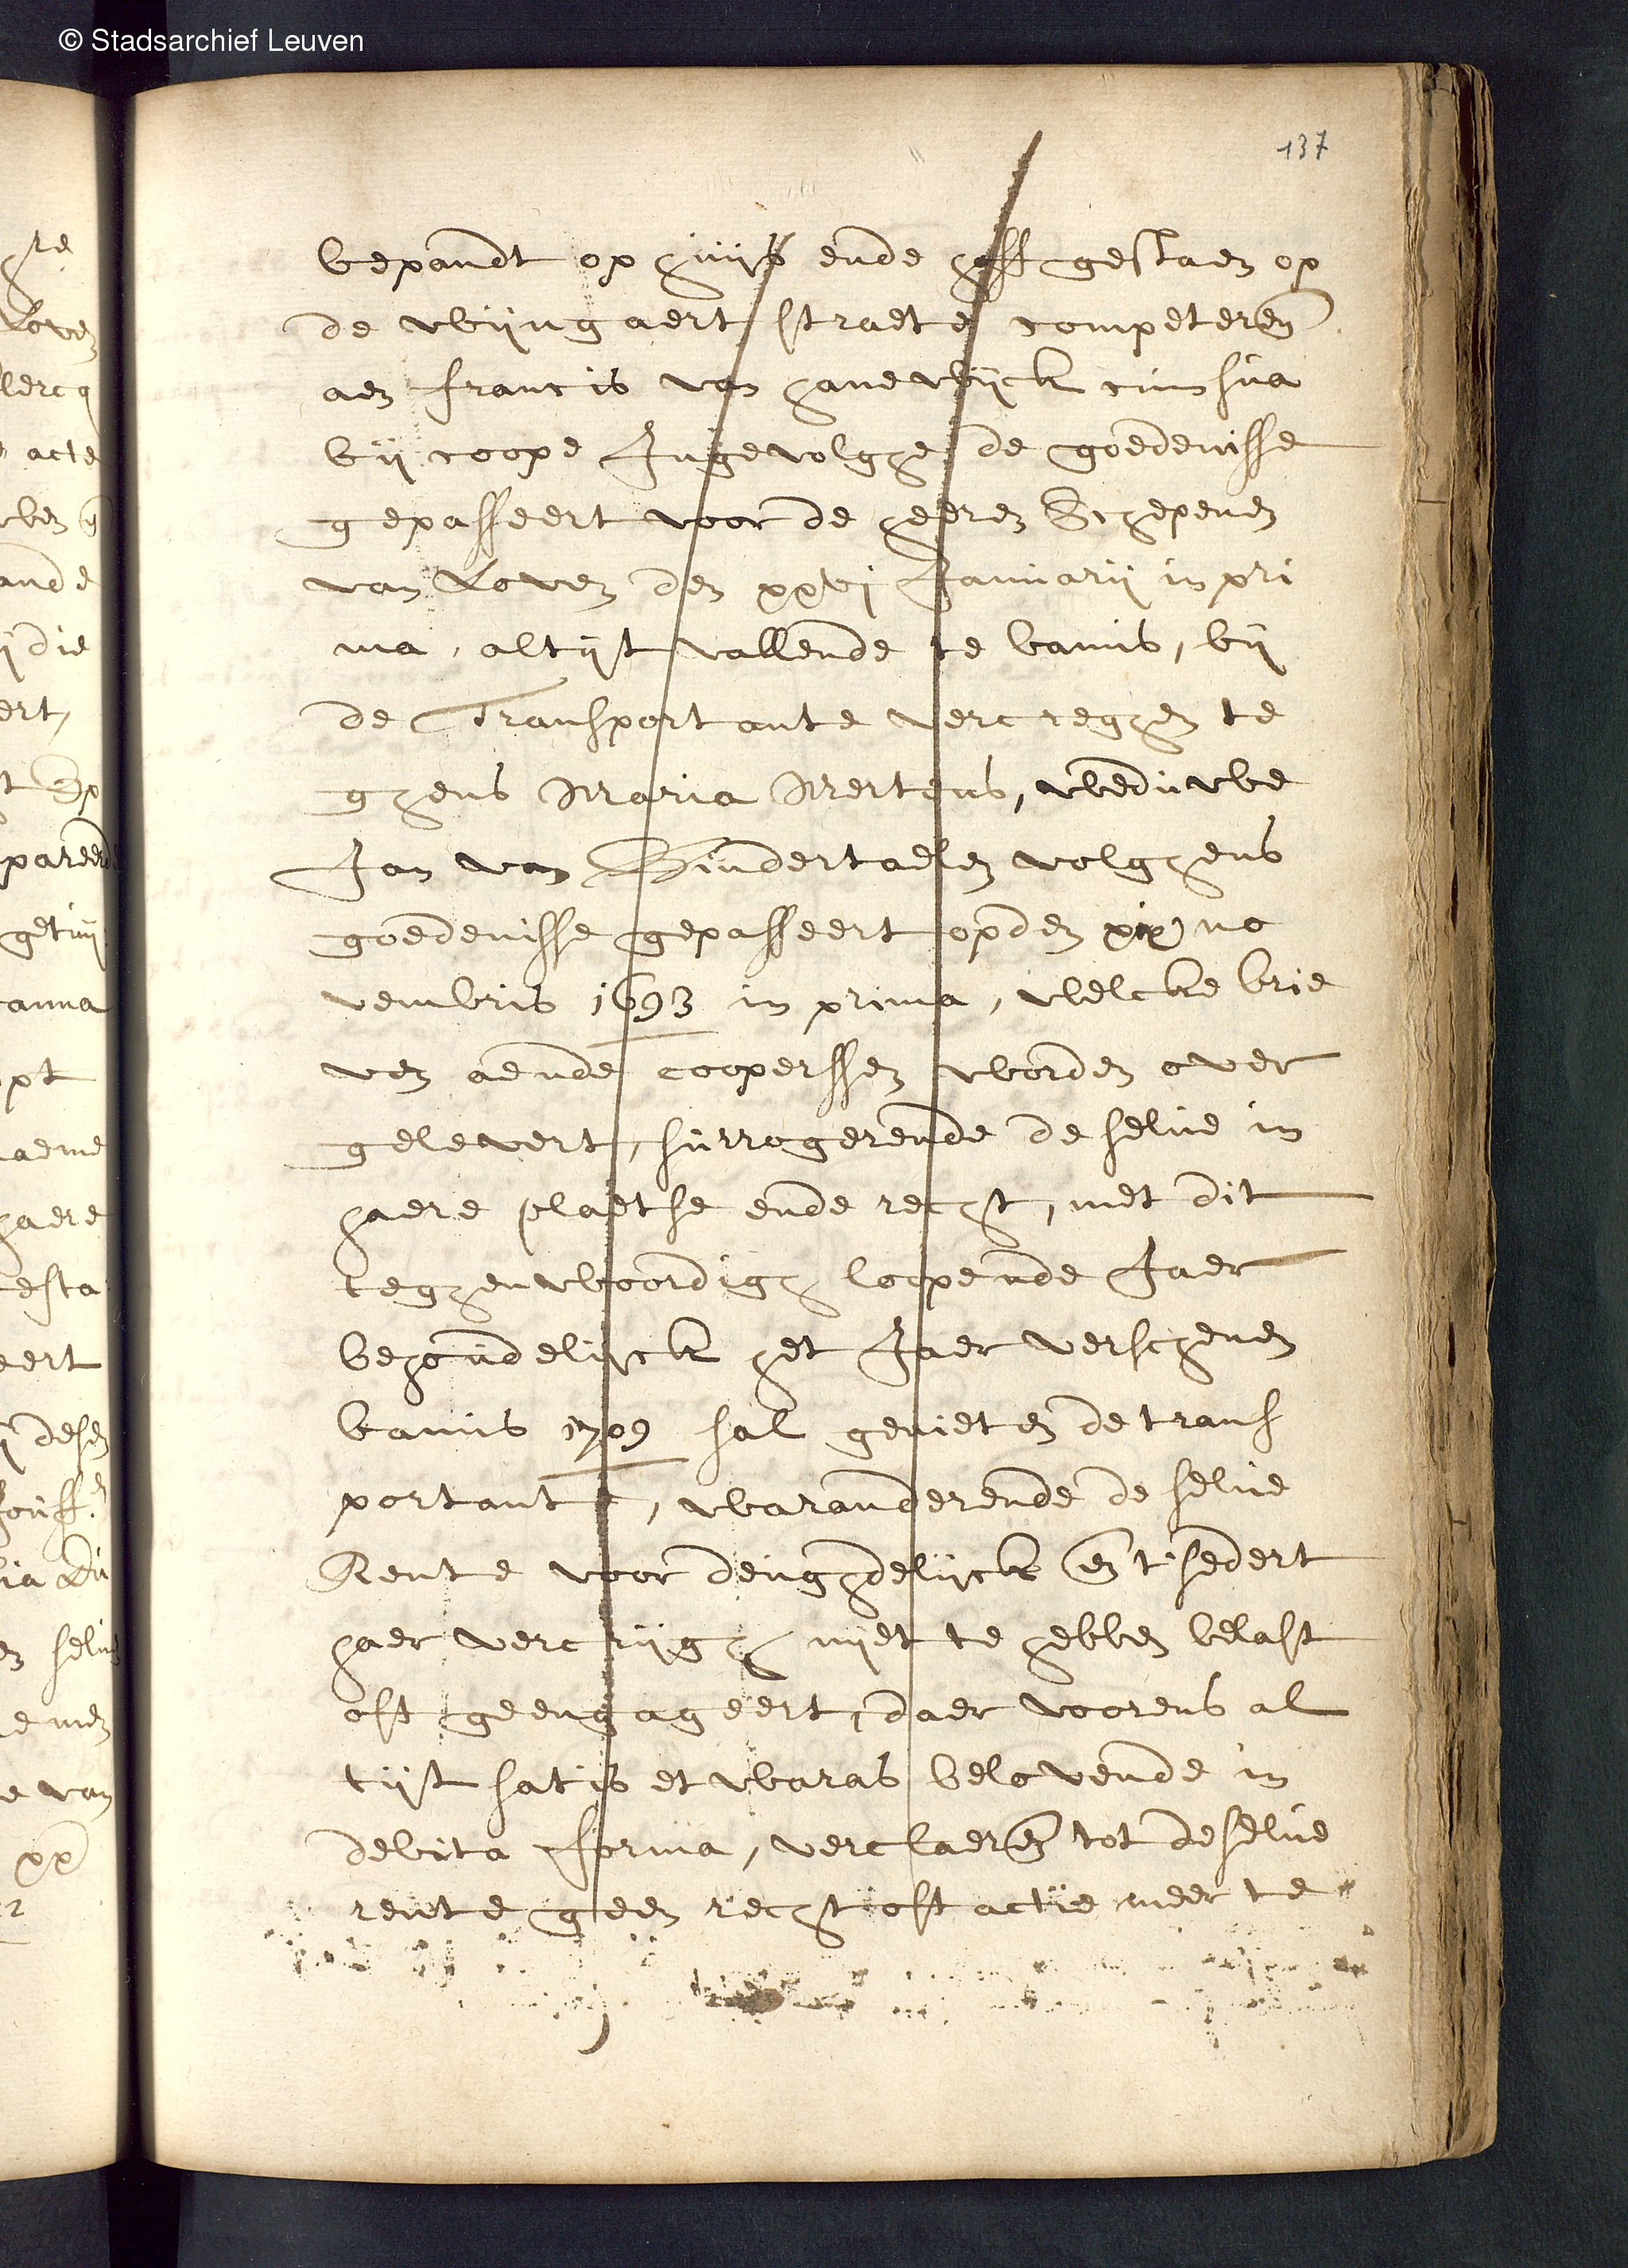 © Stadsarchief Leuven
137
bepandt op huijs ende hoff gestaen op
de wijngaert straete competeren(de)
aen francis van hanewijck cum sua
bij coope Ingevolghe de goedenisse
gepasseert voor de heeren Schepenen
van Loven den xxvj Januarij in pri
ma, altijt vallende te bamis, bij
de Transportante vercreghen te
ghens Maria Mertens, weduwe
Jan van Bindertaelen volghens
goedenisse gepasseert op den xix no
vembris 1693 in prima, welcke brie
ven aende cooperssen worden over
gelevert, surrogerende de selve in
haere plaetse ende recht, met dit
teghenwoordigh loopende Jaer
behoudelijck het Jaer verschenen
bamis 1709 sal genieten de trans
portante, waranderende de selve
Rente voor deughdelijck en t'sedert
haer vercrijgh nijet te hebben belast
oft geengageert, daer voorens al
tijt satis et waras belovende in
debita forma, verclaeren(de) tot deselve
rente geen recht oft actie meer te